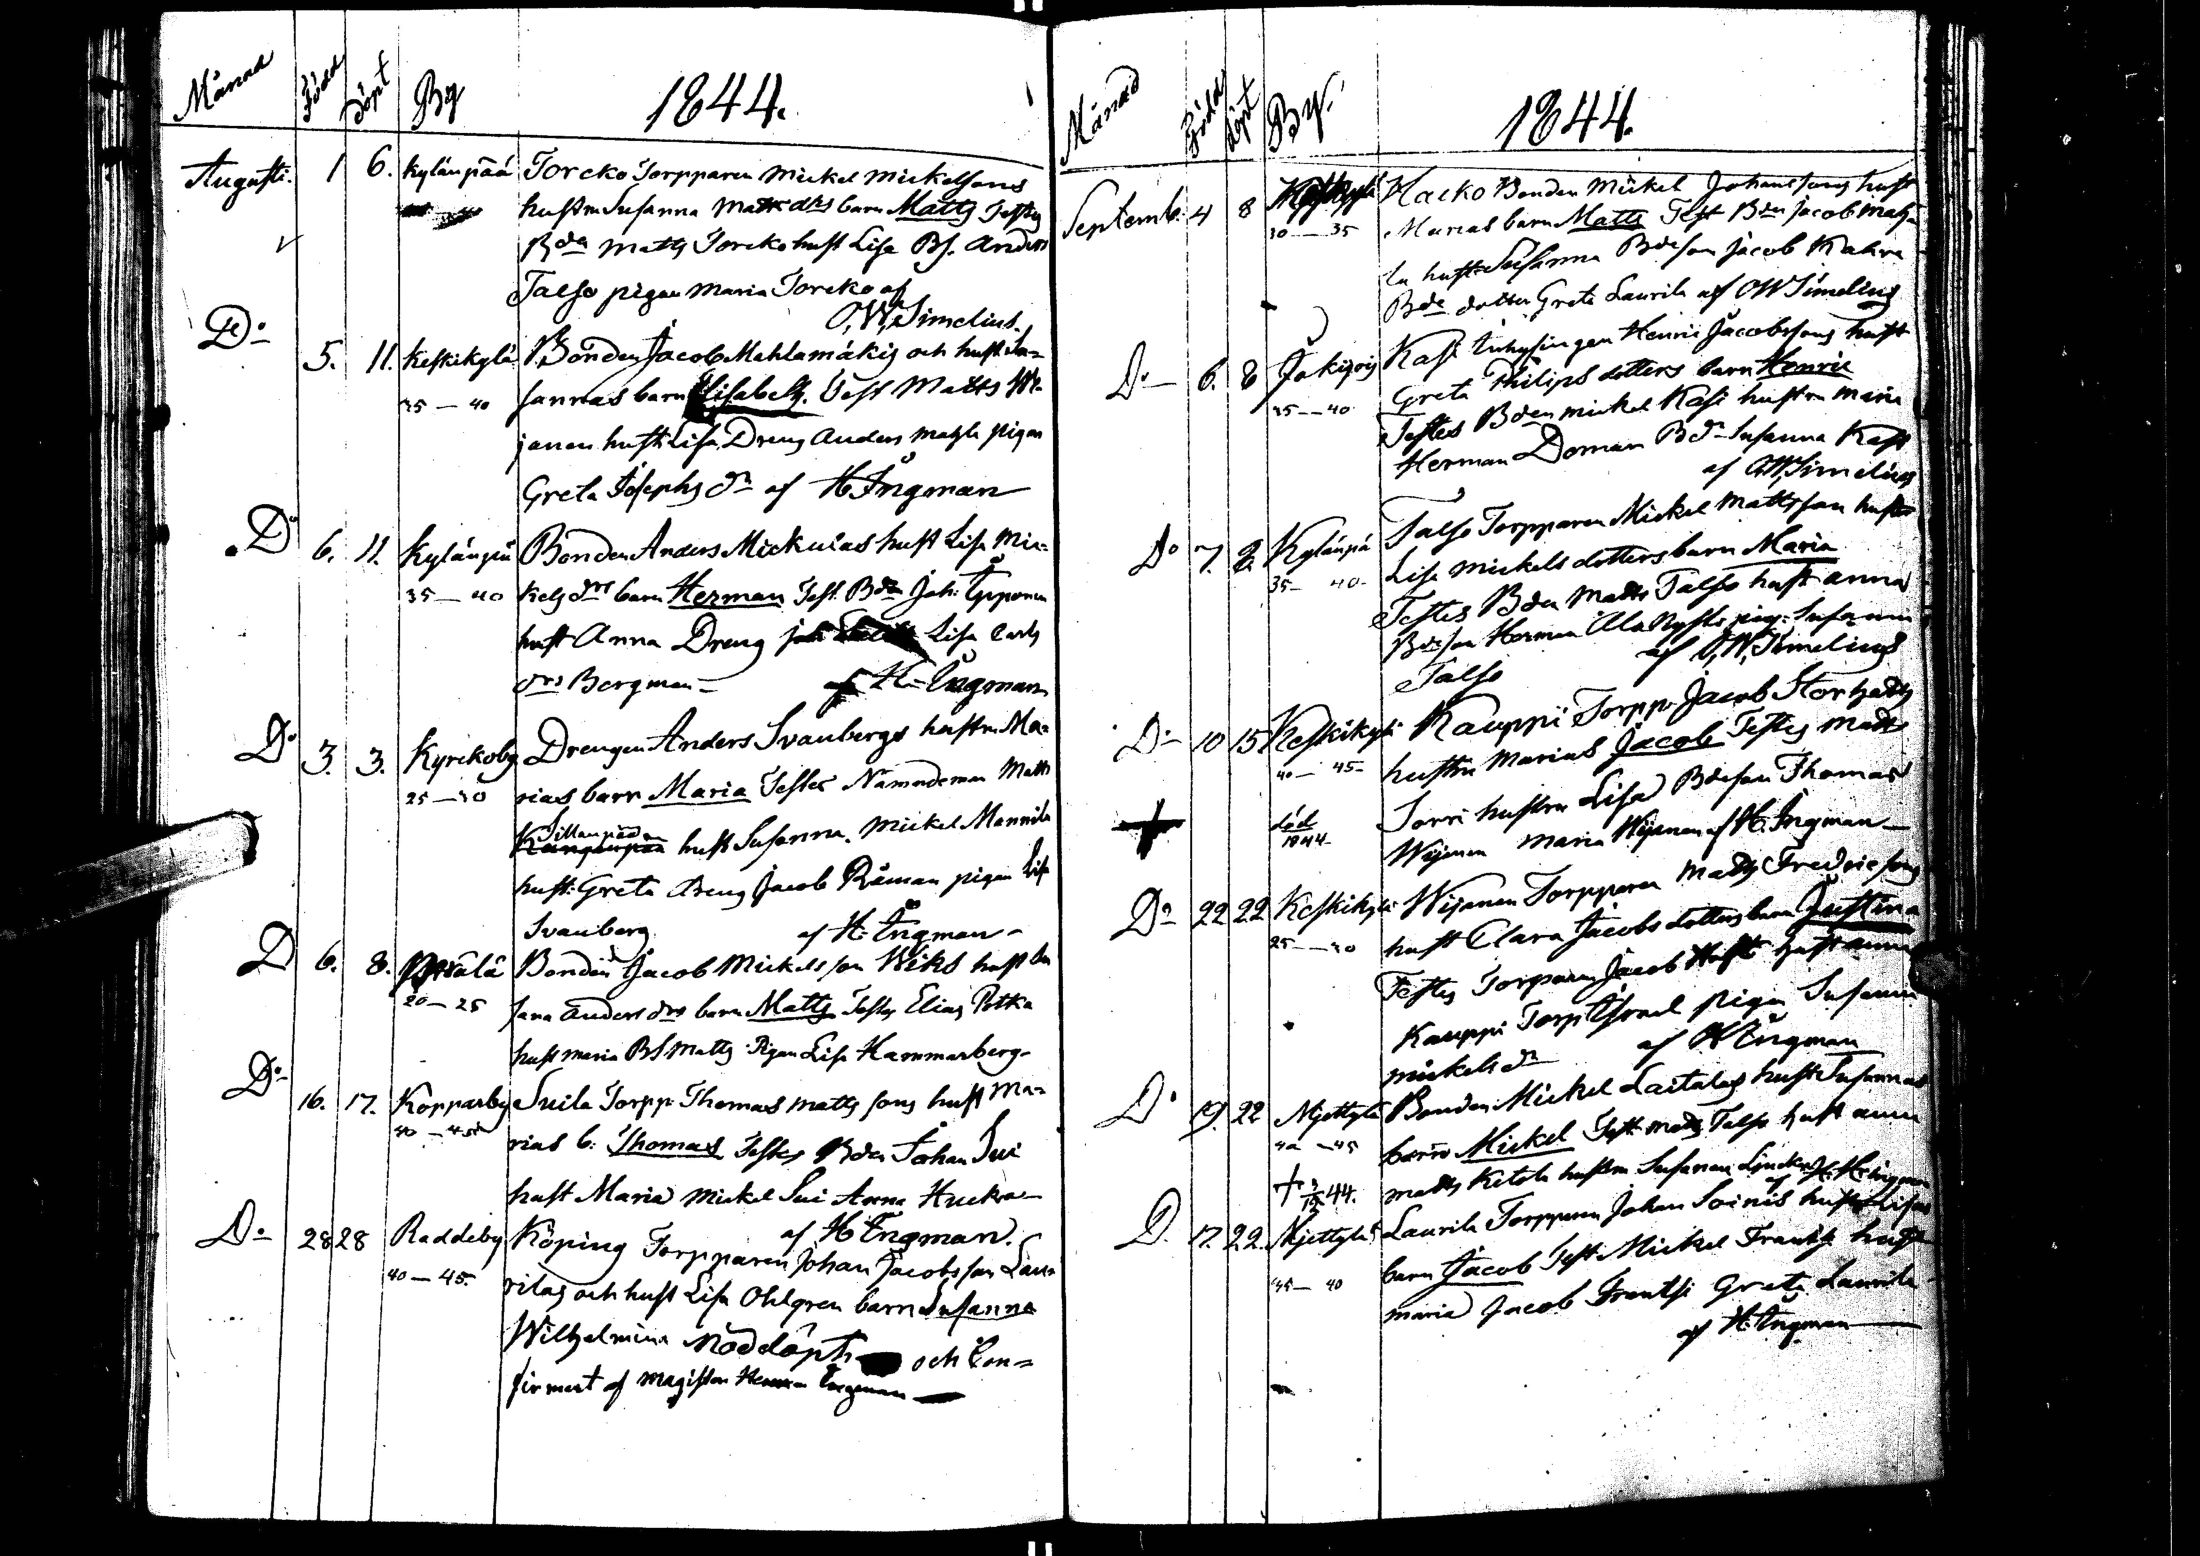 Månad Född Döpt By 1844.
Augusti. 1 6. Kylänpää Torcko Torpparen Mickel Mickelsons
hustru Susanna Matts drs barn Matts Testes
Bdn Matts Torcko hust Lisa BS. Anders
Talso pigan Maria Torcko af
O.W. Simelius.
Do 5. 11. Keskikylä Bonden Jacob Mahlamäkis och hust. Su=
35 — 40 sannas barn Elisabeth. Test Matts
janen hust. Lisa, Dreng Anders pigan
Greta Josephs dr af H Ingman
Do 6. 11. Kylänpää Bonden Anders hust Lisa Mic=
35 — 40 kels drs barn Herman Test. Bdn Joh.
hust Anna Dreng Lisa Carls
drs Bergman — af H. Ingman
Do 3. 3. Kyrckoby Drengen Anders Svanbergs hustru Ma=
25 — 30 rias barn Maria Testes Nämndeman Matts
hust Susanna. Mickel Mannila
hust: Greta Dreng Jacob Råman pigan Lisa
Svanberg af H. Ingman —
D 6. 8. Bonden Jacob Mickelsson Wiks hust Su
20 — 25 sana Anders drs barn Matts Testes Elias Potka
hust Maria BS Matts Pigan Lisa Hammarberg
Do 16. 17. Kopparby Suila Torpp Thomas Matts sons hust Ma=
40 — 45 rias b. Thomas Testes Bdn Johan Sui
hust Maria Mickel Sui Anna
af H Ingman.
Do 28 28 Raddeby Köping Torpparen Johan Jacobsson Lau=
40 — 45. rilas och hust Lisa Ohlgren barn Susanna
Wilhelmina Nöddöpt och Con=
firmert af Magister Herman Ingman
Månad Född Döpt By. 1844.
Septemb. 4 8 Hacko Bonden Mickel Johanssons hust
30 — 35 Marias barn Matts Test Bdn Jacob
la hust Susanna Bdeson Jacob
Bde dotter Greta Laurila af OW Simelius
Do 6. 8 Kasi Inhysingen Henric Jacobssons hust
35 — 40 Greta Philips dotters barn Henric
Testes Bden Mickel Kasi hustru Maria
Herman Doman Bdr Susanna Kasi
af O.W. Simelius
Do 7. 8. Kylänpä Talso Torpparen Mickel Mattsson hustr
35 — 40 Lisa Mickels dotters barn Maria
Testes Bden Matts Talso hust Anna
Bdeson Herman pig. Susanna
af O.W. Simelius
Talso
Do 10 15 Keskikylä Kauppi Torpp. Jacob
40 — 45 hustru Marias Jacob Testes Matts
död Sorri hustru Lisa Bdeson Thomas
1844 Wijanen Maria Wijanen af H. Ingman —
Do 22 22 Keskikylä Wijanen Torpparen Matts Fredricsons
25 — 30 hust Clara Jacobs dotters barn Justina
Testes Torparen Jacob hust Anna
Kauppi Torp Israel pigan Susanna
Mickels dr af H Ingman
Do 19 22 Mjettylä Bonden Mickel Laitalas hust Susannas
40 — 45 barn Mickel Test Matts Talso hust Anna
44. Matts Ketola hustru Susanna af H. Ingman
D. 17. 22. Mjettylä Laurila Torpparen Johan Soinis hust Lisas
35 — 40 barn Jacob Test. Mickel Frantsi hust
Maria Jacob Frantsi Greta Laurila
af H. Ingman